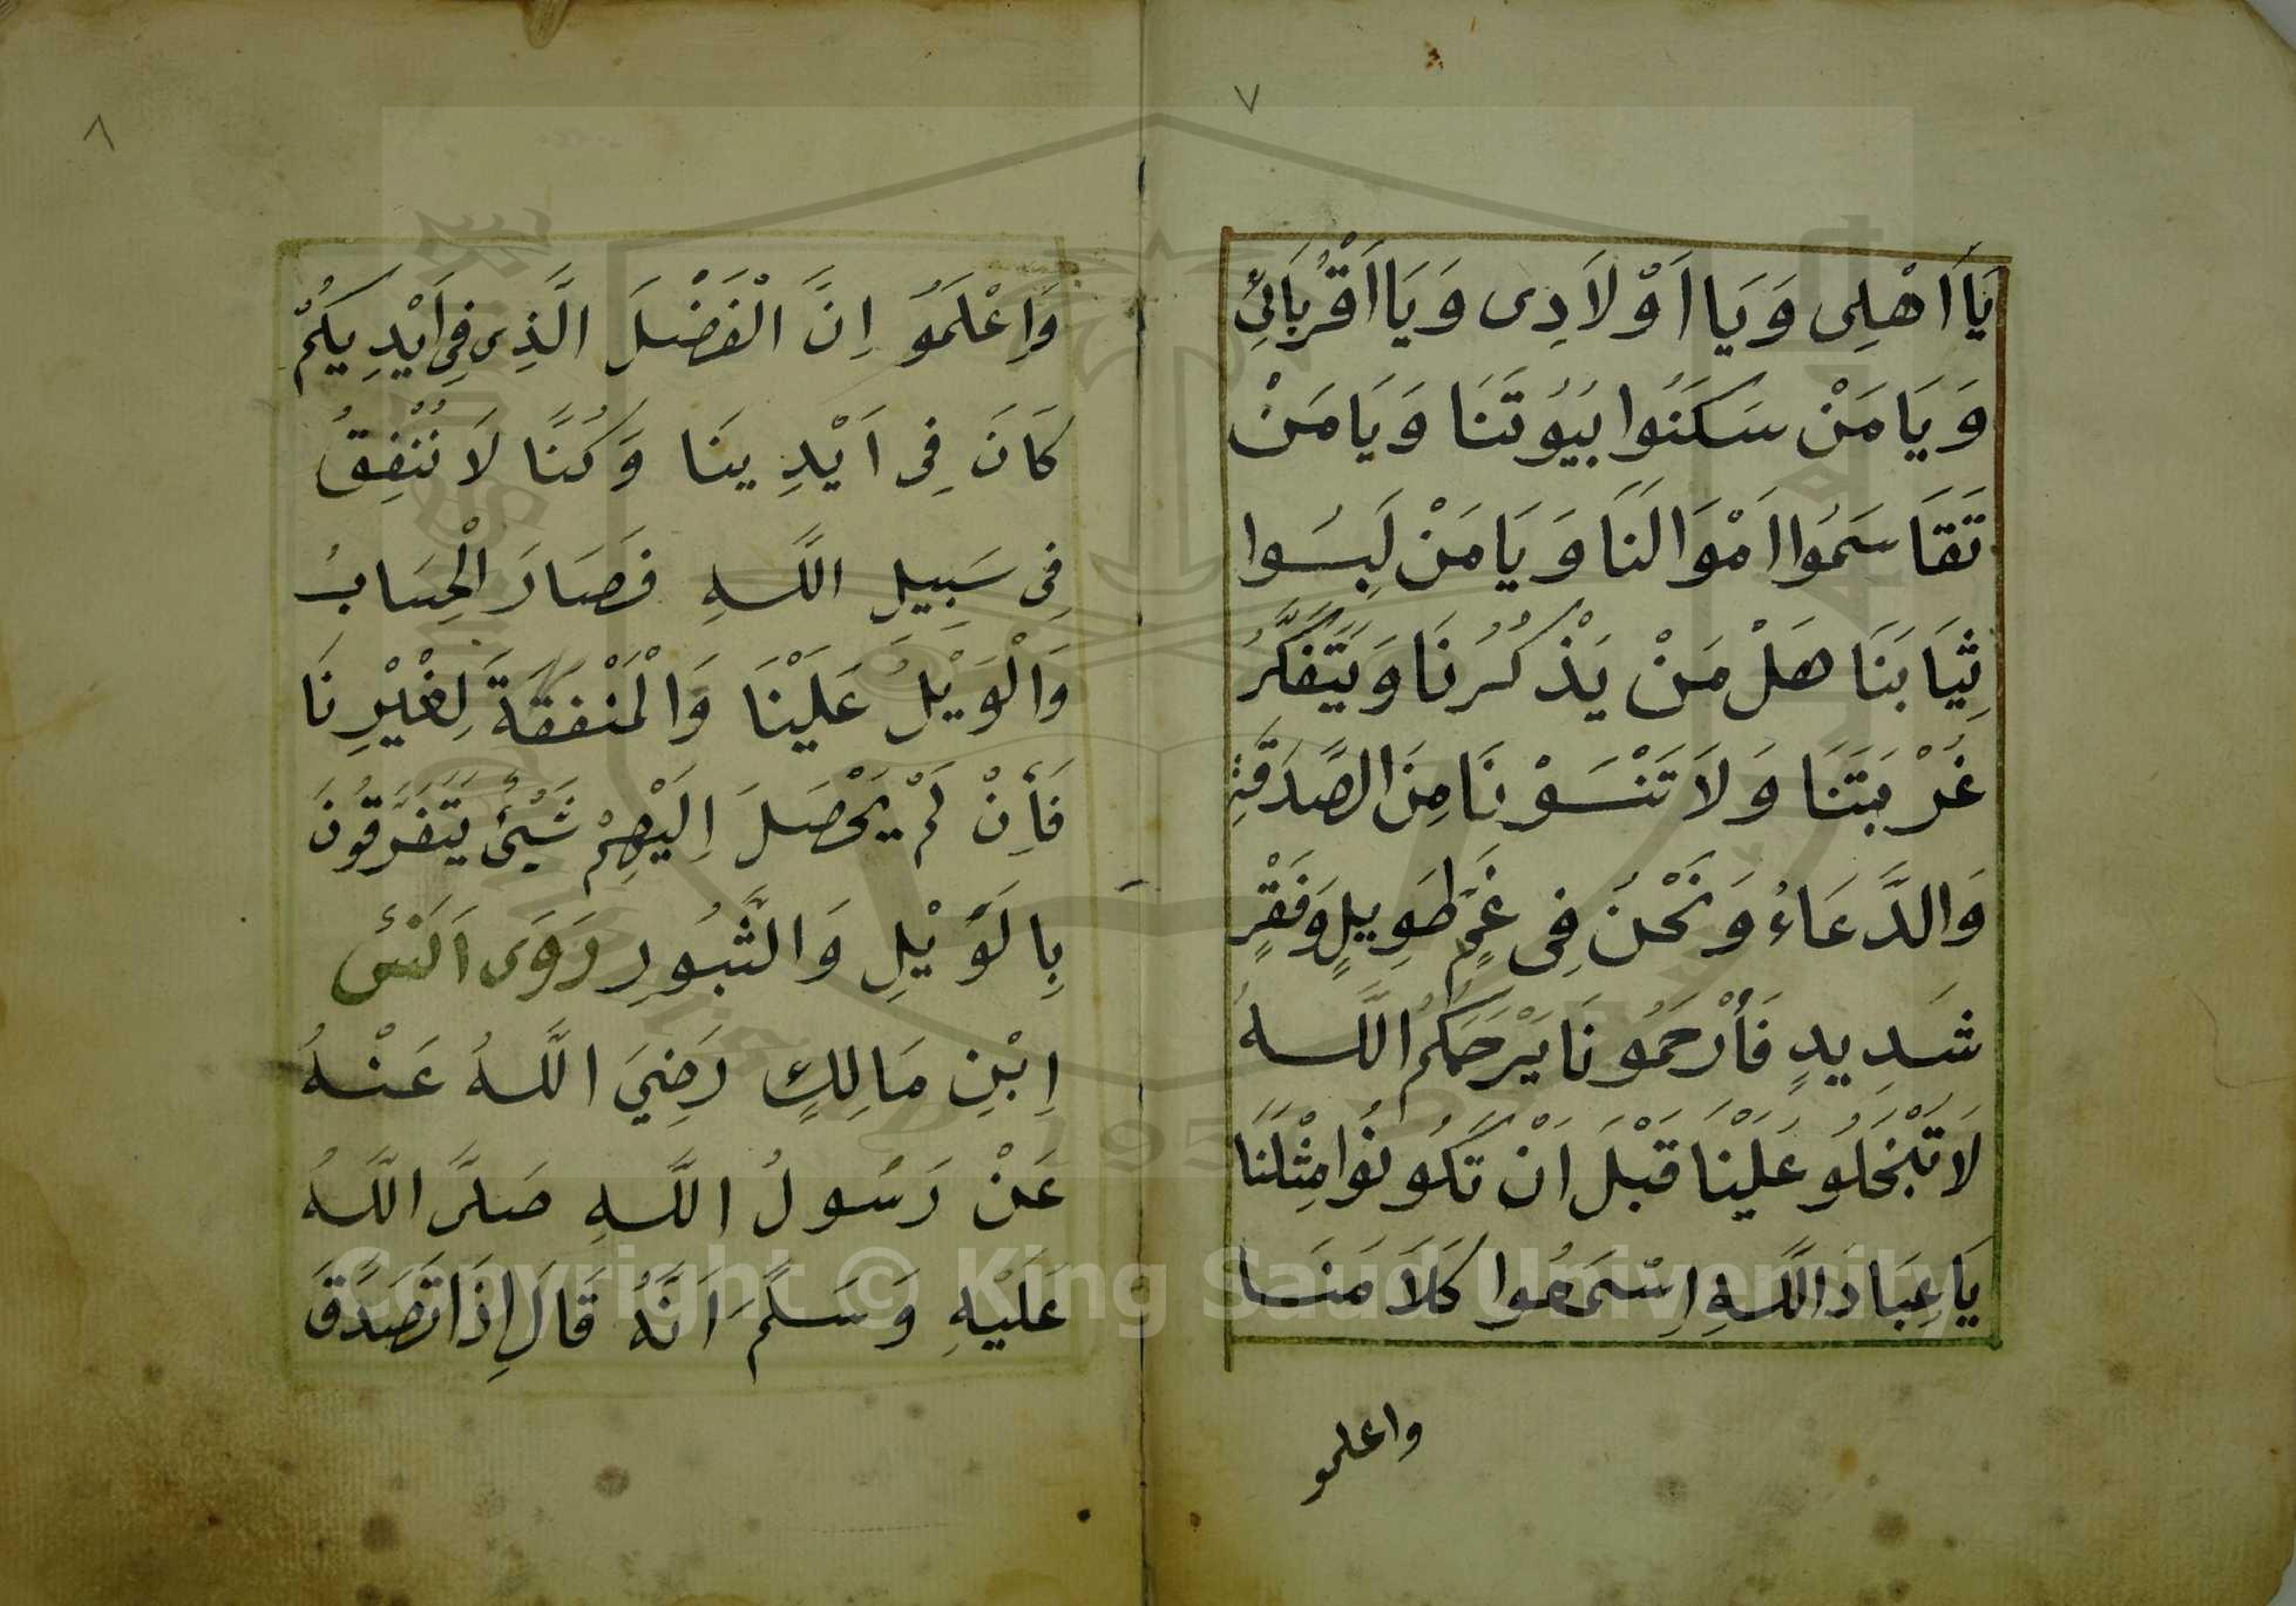 ٧
يَا اَهْلِى وَيَا اَوْلَادِى وَيَا اَقْرُبَائِىْ
وَيَا مَنْ سَكَنُوا بُيُوتَنَا وَيَا مَنْ
تَقَاسَمُوا اَمْوَالَنَا وَيَا مَنْ لَبِسُوا
ثِيَابَنَا هَلْ مَنْ يَذْكُرُنَا وَيَتَفَكَّرُ
غُرْبَتَنَا وَلَا تَنْسَوْنَا مِنَ الصَّدَقَةِ
وَالدَّعَاءُ وَنَحْنُ فِى غَمٍّ طَوِيلٍ وَفَقْرٍ
شَدِيدٍ فَأرْحَمُونَا يَرْحَمَكُمُ اللَّهُ
لَا تَبْخَلُو عَلَيْنَا قَبْلَ اَنْ تَكُونُوا مِثْلَنَا
يَا عِبَادَ اللَّهِ اِسْمَعُوا كَلَامَنَا
واعلمو
٨
وَاِعْلَمَوُ اِنَّ الْفَضْلَ الَّذِى فِى اَيْدِيكُمْ
كَانَ فِى اَيْدِينَا وَكُنَّا لَا نُنْفِقُ
فِى سَبِيلِ اللَّهِ فَصَارَ الْحِسَابُ
وَالْوَيْلُ عَلَيْنَا وَالْمَنْفَقَةَ لِغَيْرِنَا
فَأِنْ لَمْ يَحْصَلَ اِلَيْهِمْ شَيْئٌ يَتَفَرَّقُونَ
بِالوَيْلِ وَالثَّبُورِ رَوَى اَنَسْ
اِبْنِ مَالِكٍ رَضِيَ اللَّهُ عَنْهُ
عَنْ رَسُولُ اللَّهِ صَلَّى اللَّهُ
عَلَيْهِ وَسَلَّمَ اَنَّهُ قَالَ اِذَا تَصَدَّقَ
Copyright © King Saud University